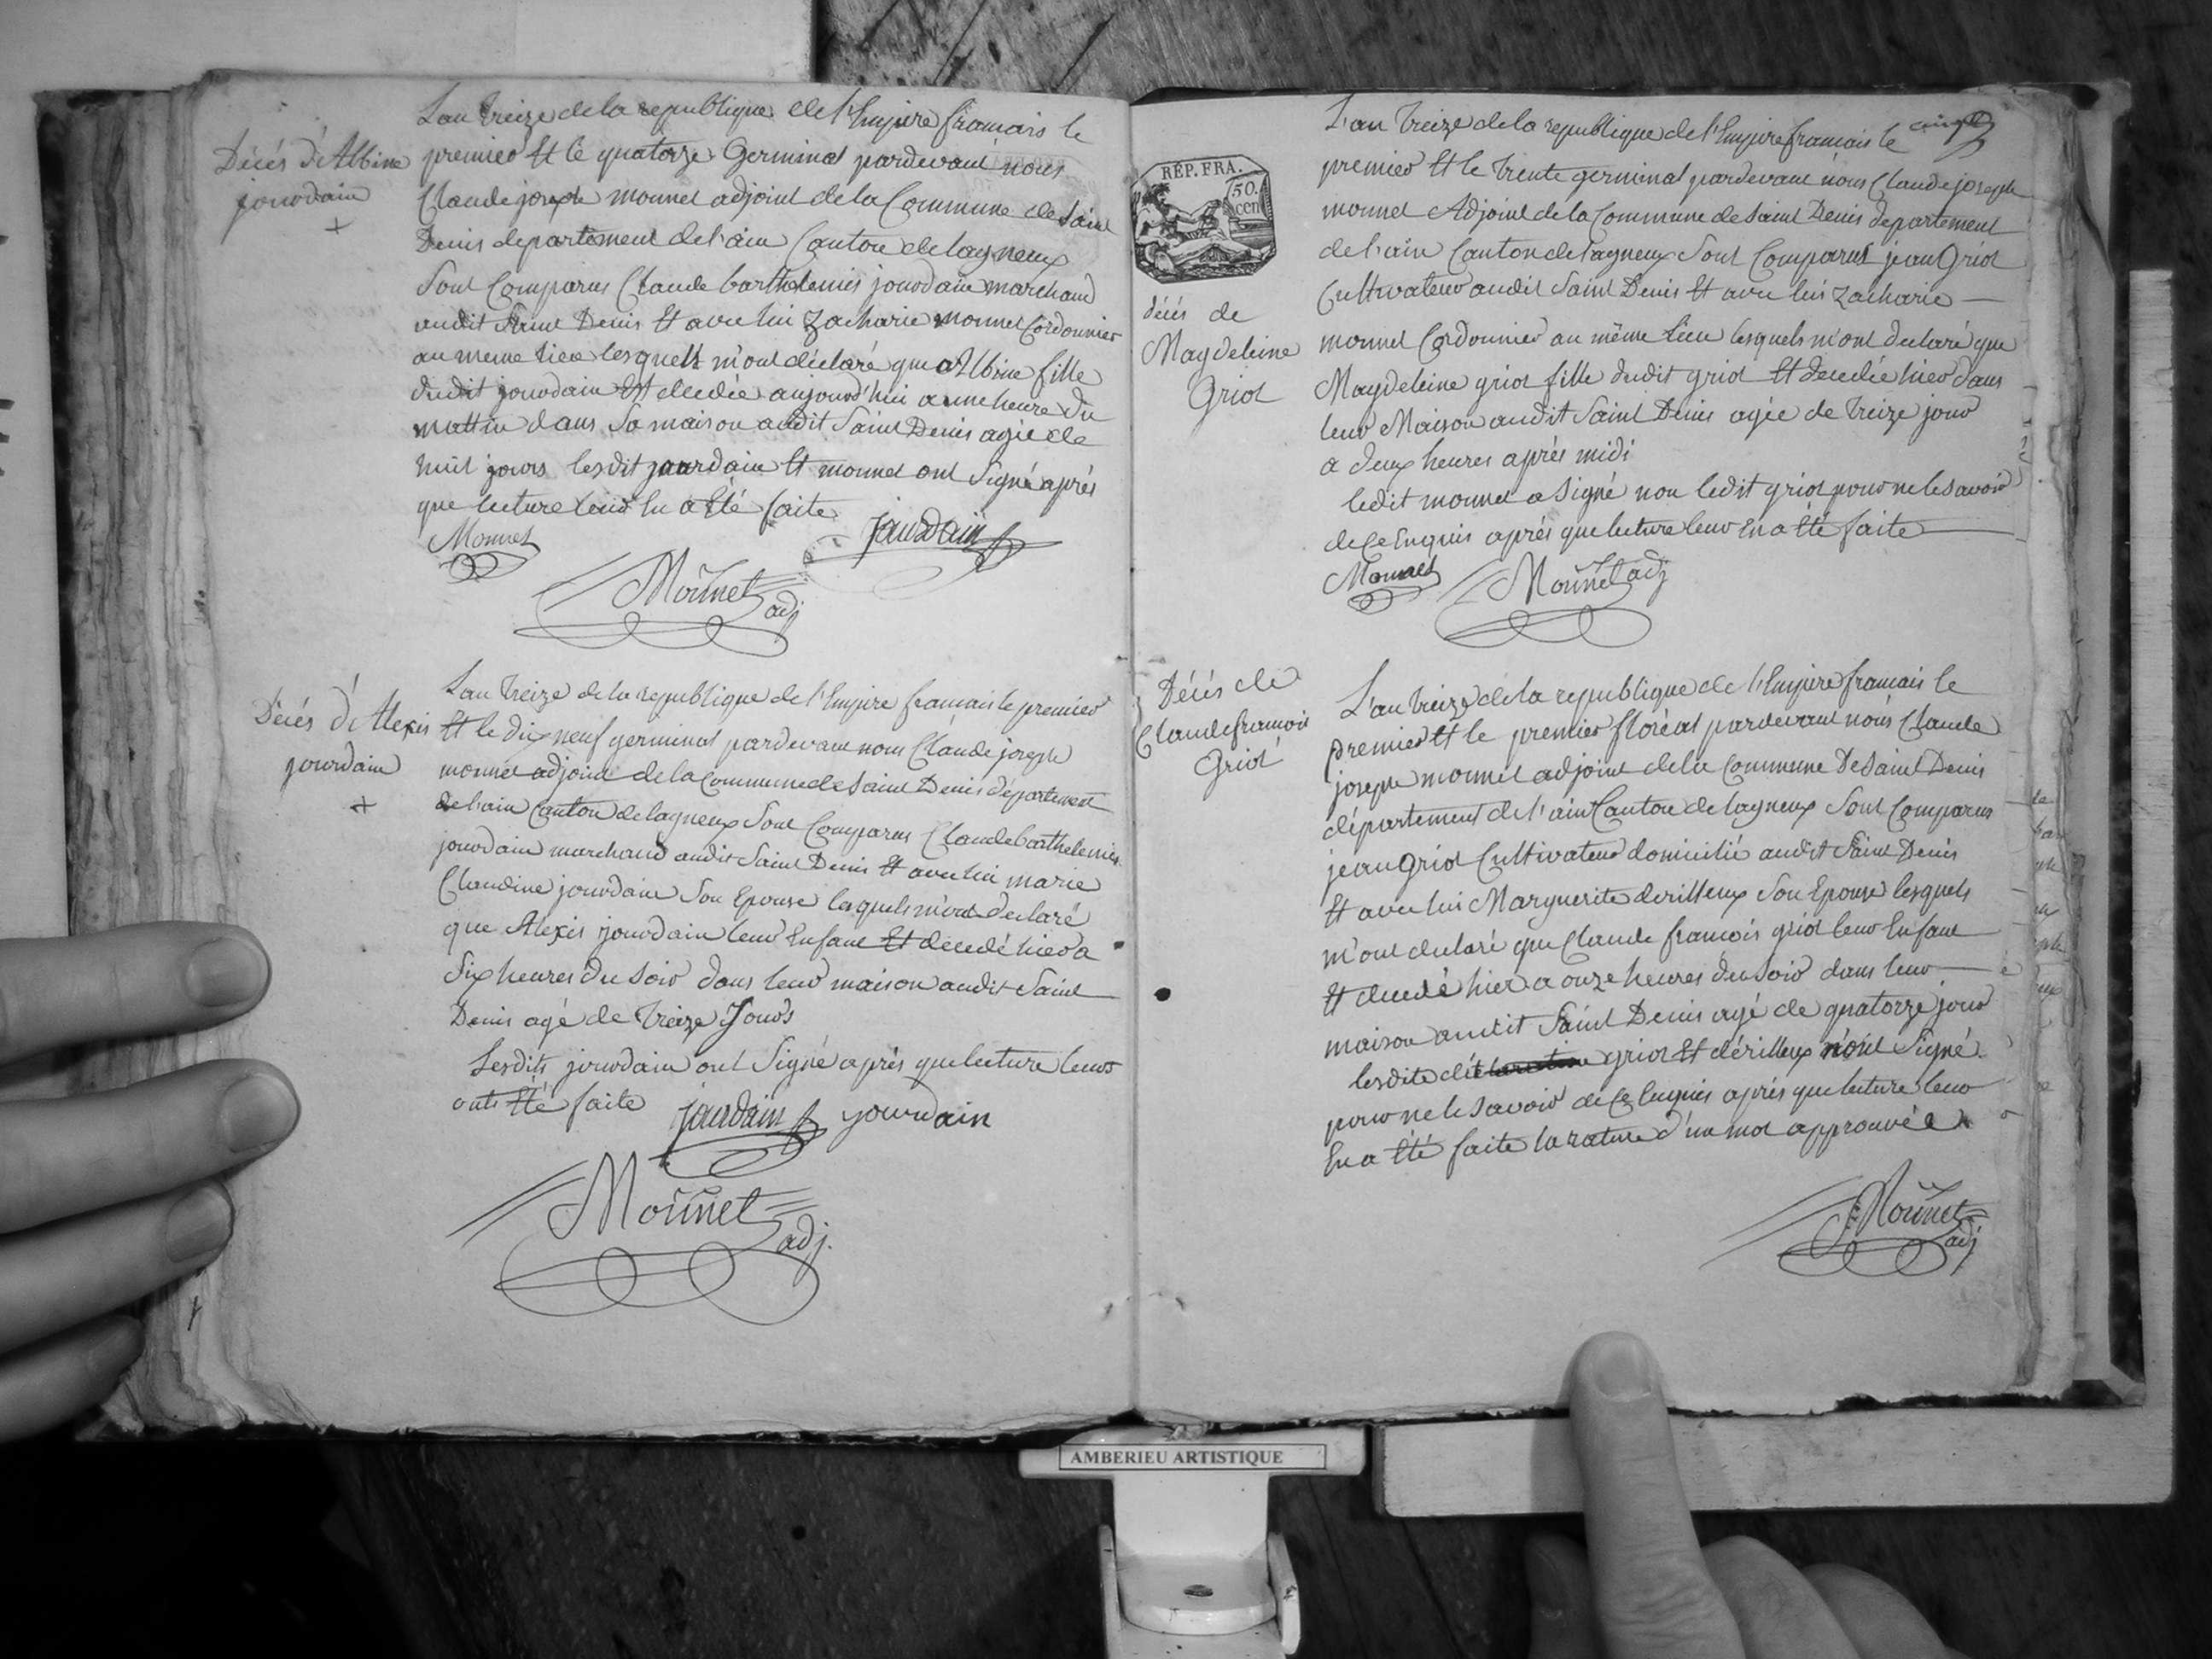 Décés d'Albine
jourdain
+
L'an treize de la republique de l'Empire francais le
premier Et le quatorze Germinal pardevant nous
Claude joseph monnet adjoint de la Commune de Saint
Denis departement de l'ain Canton de lagneux
Sont Comparus Claude barthelemis jourdain marchand
audit Saint Denis Et avec lui Zacharie monnet Cordonnier
au meme lieu lesquels m'ont déclaré que Albine fille
dudit jourdain Est decedée aujourd'hui a une heure du
mattin dans Sa maison audit Saint Denis agée de
huit jours lesdit jourdain Et monnet ont Signé aprés
que lecture leur En a Eté faite
Monnet
jaurdain
Monnet adj
Décés d'Alexis
jourdain
+
L'an treize de la republique de l'Empire francais le premier
Et le dix neuf germinal pardevant nous Claude joseph
monnet adjoint de la Commune de Saint Denis département
de l'ain Canton de lagneux Sont Comparus Claude barthelemis
jourdain marchand audit Saint Denis Et avec lui marie
Claudine jourdain Son Epouse lesquels m'ont declaré
que Alexis jourdain leur Enfant Et decedé hier a
Six heures du Soir dans leur maison audit Saint
Denis agé de treize Jours
Lesdits jourdain ont Signé aprés que lecture leurs
onts Eté faite
jaurdain jourdain
Monnet adj.
RÉP. FRA.
50.
cen
décés de
Magdeleine
Griot
L'an treize de la republique de l'Empire francais le
premier Et le trente germinal pardevant nous Claude joseph
monnet Adjoint de la Commune de Saint Denis departement
de l'ain Canton de Lagneux Sont Comparus jean Griot
Cultivateur audit Saint Denis Et avec lui Zacharie
monnet Cordonnier au même lieu lesquels m'ont declaré que
Magdeleine griot fille dudit griot Et decedée hier dans
leur Maison audit Saint Denis agée de treize jour
a deux heures aprés midi
ledit monnet a Signé non ledit griot pour ne le Savoir
de Ce Enquis aprés que lecture leur En a Eté faite
Monnet
Monnet adj
Décés de
Claude francois
Griot
L'an treize de la republique de l'Empire francais le
premier Et le premier floréal pardevant nous Claude
joseph monnet adjoint de la Commune De Saint Denis
département de l'ain Canton de lagneux Sont Comparus
jean Griot Cultivateur domicilié audit Saint Denis
Et avec lui Marguerite derilleux Son Epouse lesquels
m'ont declaré que Claude francois griot leur Enfant
Et decedé hier a onze heures du Soir dans leur
maison audit Saint Denis agé de quatorze jour
lesdits griot Et dérilleux n'ont Signé
pour ne le Savoir de Ce Enquis aprés que lecture leur
En a Eté faite la rature d'un mot approuvée
Monnet adj
AMBERIEU ARTISTIQUE